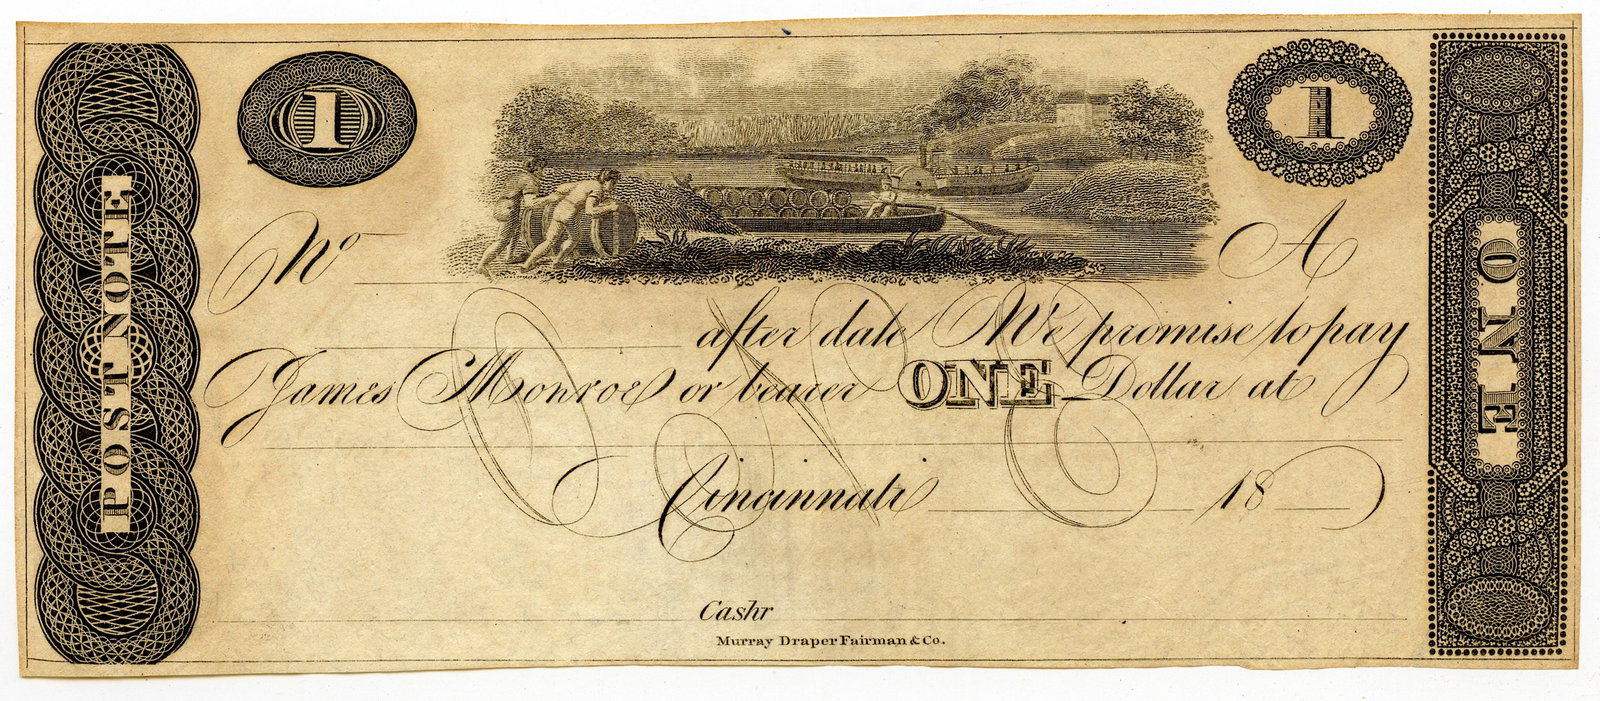 POST NOTE
1
1
ONE
No
A
after date We promise to pay
James Monroe or bearer ONE Dollar at
ONE
Cincinnati 18
Cashr
Murray Draper Fairman & Co.